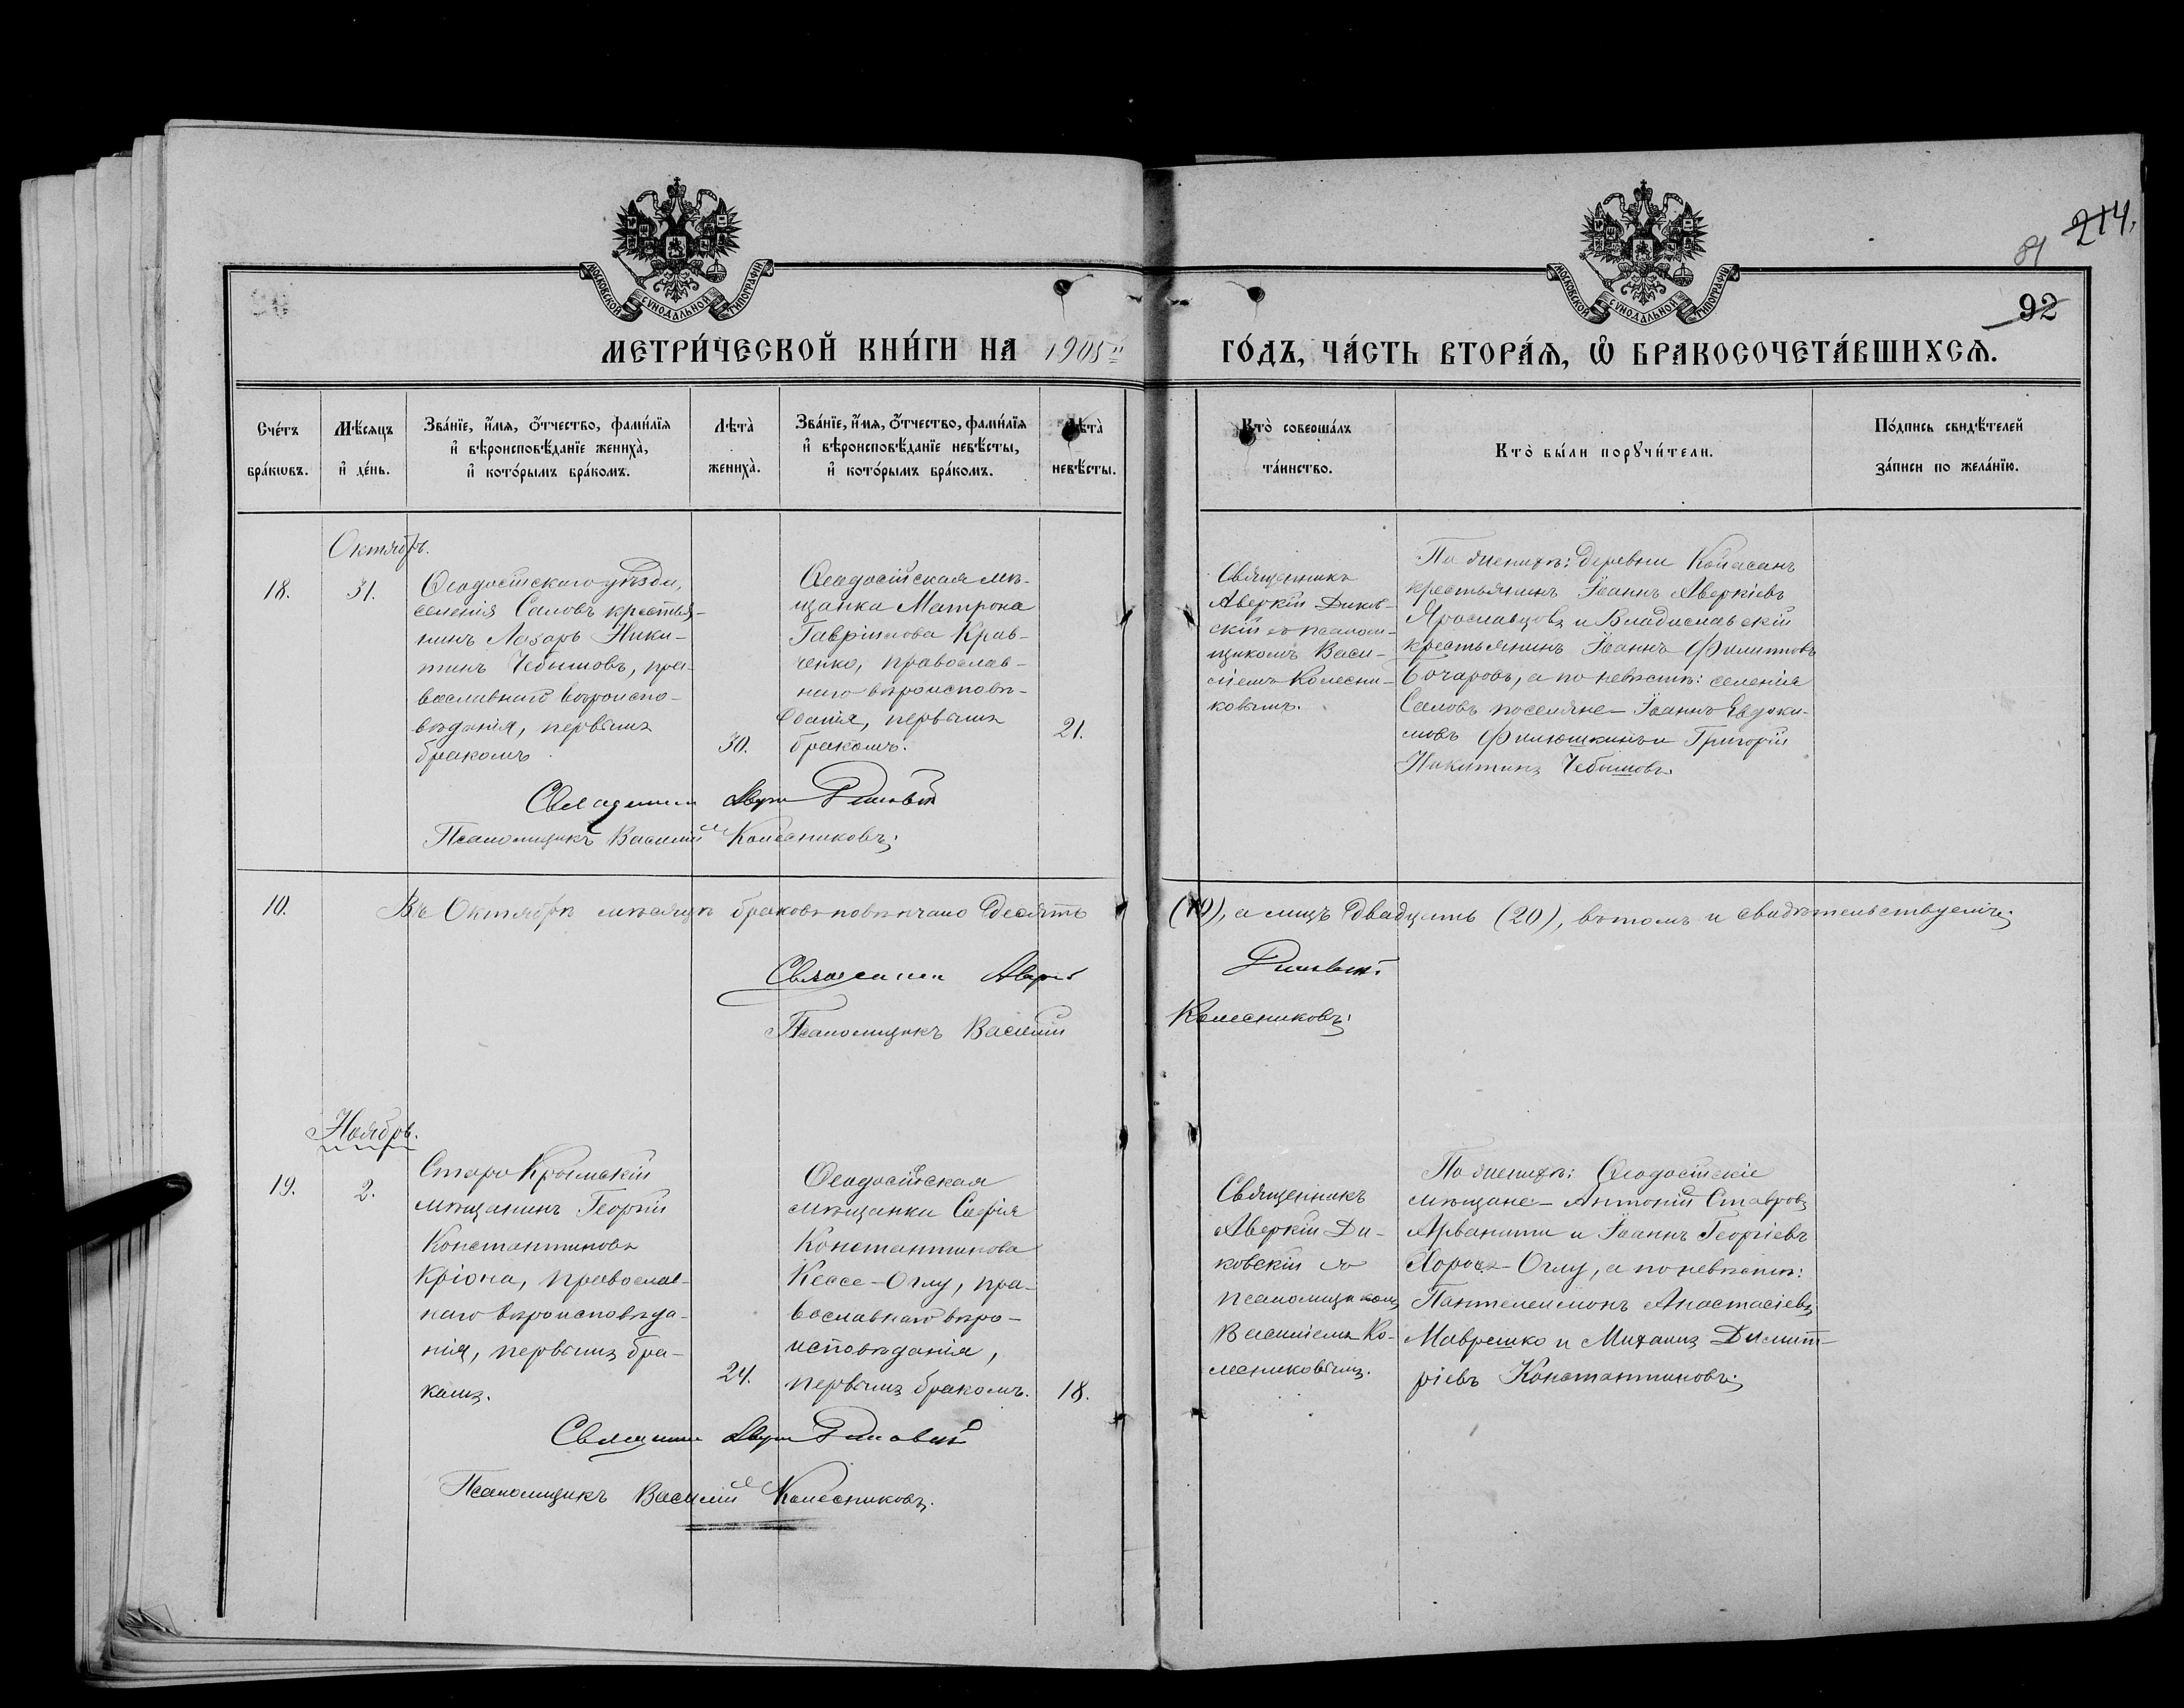 МОСКОВСКОЙ СѴНОДАЛЬНОЙ ТИПОГРАФІИ
МОСКОВСКОЙ СѴНОДАЛЬНОЙ ТИПОГРАФІИ
214.
92
МЕТРИ́ЧЕСКОЙ КНИ́ГИ НА 1905й
ГО́ДЪ, ЧА́СТЬ ВТОРА́Ѧ, Ѡ҆ БРАКОСОЧЕТА́ВШИХСѦ.
Сче́тъ
бра́кѡвъ.
Мѣ́сяцъ
и҆ де́нь.
Зва́нїе, и҆́мя, ѻ҆́тчество, фами́лїя
и҆ вѣроисповѣ́данїе жениха̀,
и҆ кото́рымъ бра́комъ.
Лѣта̀
жениха̀.
Зва́нїе, и҆́мя, ѻ҆́тчество, фами́лїя
и҆ вѣроисповѣ́данїе невѣ́сты,
и҆ кото́рымъ бра́комъ.
Лѣта̀
невѣ́сты.
Кто̀ соверша́лъ
та́инство.
Кто̀ бы́ли порꙋчи́тели.
По́дпись свидѣ́телей
за́писи по жела́нїю.
Октябрь.
18.
31.
Ѳеодосійскаго уѣзда,
селенія Саловъ крестья-
нинъ Лазарь Ники-
тинъ Чебышовъ, пра-
вославнаго вѣроиспо-
вѣданія, первымъ
бракомъ
30.
Ѳеодосійская мѣ-
щанка Матрона
Гавріилова Крав-
ченко, православ-
наго вѣроисповѣ-
данія, первымъ
бракомъ.
21.
Священникъ
Аверкій Диков-
скій съ псалом-
щикомъ Васи-
ліемъ Колесни-
ковымъ.
По женихѣ: деревни Койасанъ
крестьянинъ Іоаннъ Аверкіевъ
Ярославцовъ и Владиславскій
крестьянинъ Іоаннъ Филипповъ
Бочаровъ, а по невѣстѣ: селенія
Саловъ поселяне - Іоаннъ Евдоки-
мовъ Филюшкинъ и Григорій
Никитинъ Чебышовъ.
Священник Аверк Диковскій
Псаломщикъ Василій Колесниковъ.
10.
Въ Октябрѣ мѣсяцѣ браковъ повѣнчано десять
(10), а лицъ двадцать (20), въ томъ и свидѣтельствуемъ:
Священник Аверк
Диковскій
Псаломщикъ Василій
Колесниковъ.
Ноябрь.
19.
2.
Старо Крымскій
мѣщанинъ Георгій
Константиновъ
Кріона, православ-
наго вѣроисповѣда-
нія, первымъ бра-
комъ.
24.
Ѳеодосійская
мѣщанка Софія
Константинова
Кессе-Оглу, пра-
вославнаго вѣро-
исповѣданія,
первымъ бракомъ.
18.
Священникъ
Аверкій Ди-
ковскій съ
псаломщикомъ
Василіемъ Ко-
лесниковымъ.
По женихѣ: Ѳеодосійскіе
мѣщане - Антоній Ставровъ
Арванити и Іоаннъ Георгіевъ
Оглу, а по невѣстѣ:
Пантелеимонъ Анастасіевъ
Маврешко и Михаилъ Димит-
ріевъ Константиновъ.
Священник Аверк Диковскій
Псаломщикъ Василій Колесниковъ.